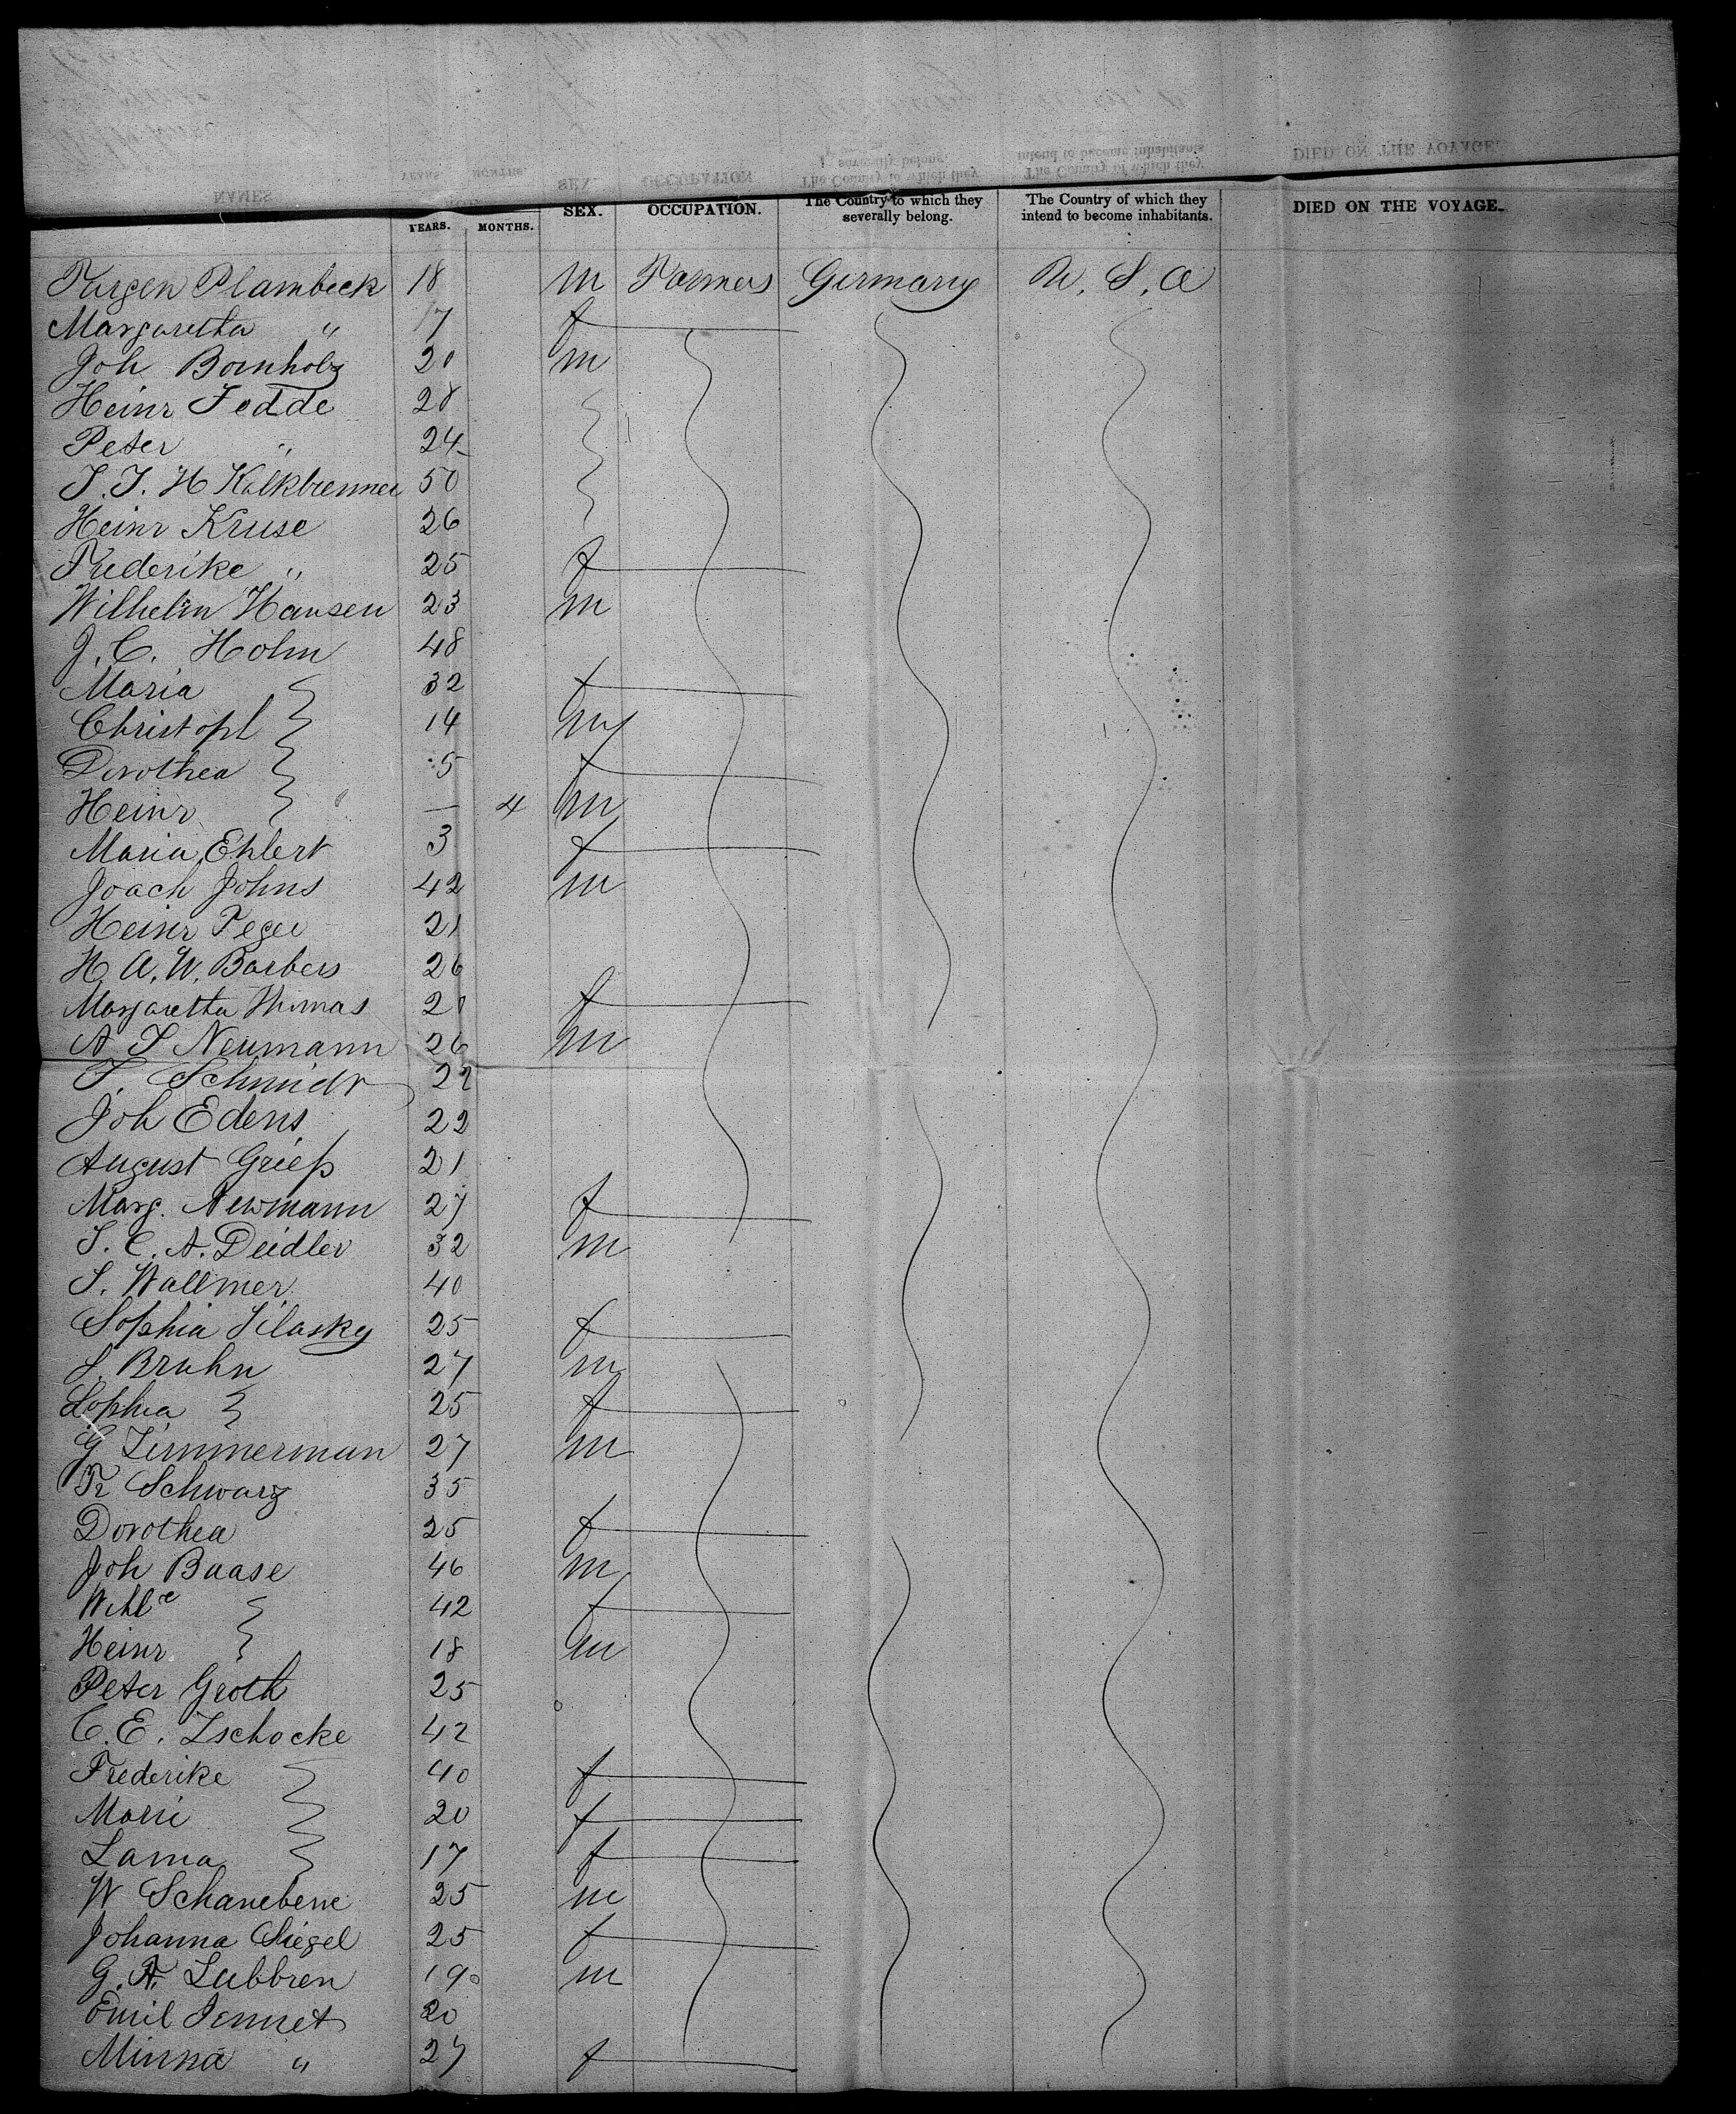 YEARS. MONTHS. SEX. OCCUPATION. The Country to which they severally belong. The Country of which they intend to become inhabitants. DIED ON THE VOYAGE.
Jurgen Plambeck 18 m Farmers Germany U. S. a
Margaretha " 17 f
Joh Bornholz 20 m
Heinr Fedde 28
Peter " 24
J. J. H Kalkbrenner 50
Heinr Kruse 26
Frederike " 25 f
Wilhelm Hansen 23 m
J. C. Holm 48
Maria 32 f
Christopl 14 m
Dorothea 5 f
Heinr — 4 m
Maria Ehlert 3 f
Joach Johns 42 m
Heinr Feger 21
H. A. W. Barbers 26
Margaretha Thomas 20 f
A J Neumann 26 m
F. Schmidt 22
Joh Edens 22
August Grieß 21
Marg. Newmann 27 f
J. C. A. Deidler 32 m
J. Wallmer 40
Sophia Silasky 25 f
J. Bruhn 27 m
Sophia 25 f
G Zimmerman 27 m
Fr Schwarz 35
Dorothea 25 f
Joh Baase 46 m
Wihl e 42 f
Heinr 18 m
Peter Groth 25
C. E. Zschocke 42
Frederike 40 f
Marie 20 f
Lama 17 f
W Schanebene 25 m
Johanna Siegel 25 f
G. A. Lubbren 19 m
Emil Jennet 20
Minna " 27 f